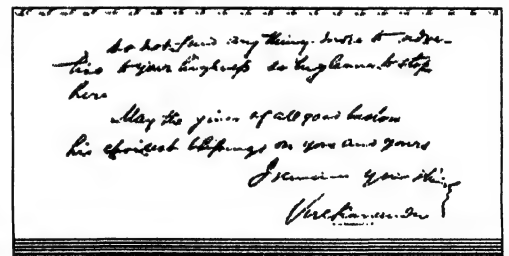 do not find any thing more to adver-
tise to your highness so beg leave to stop
here
May the giver of all good bestow
his choicest blessings on you and yours
I remain yours &c
Vivekananda